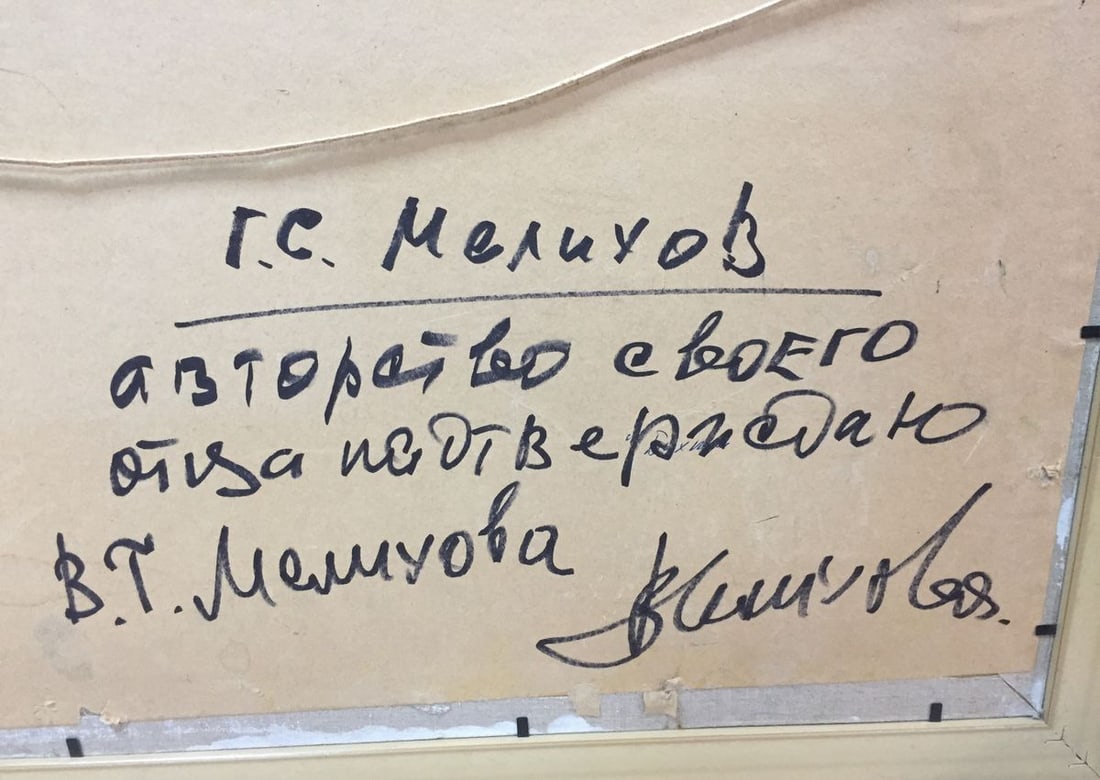 Г.С. Мелихов
авторство своего
отца подтверждаю
В.Г. Мелихова